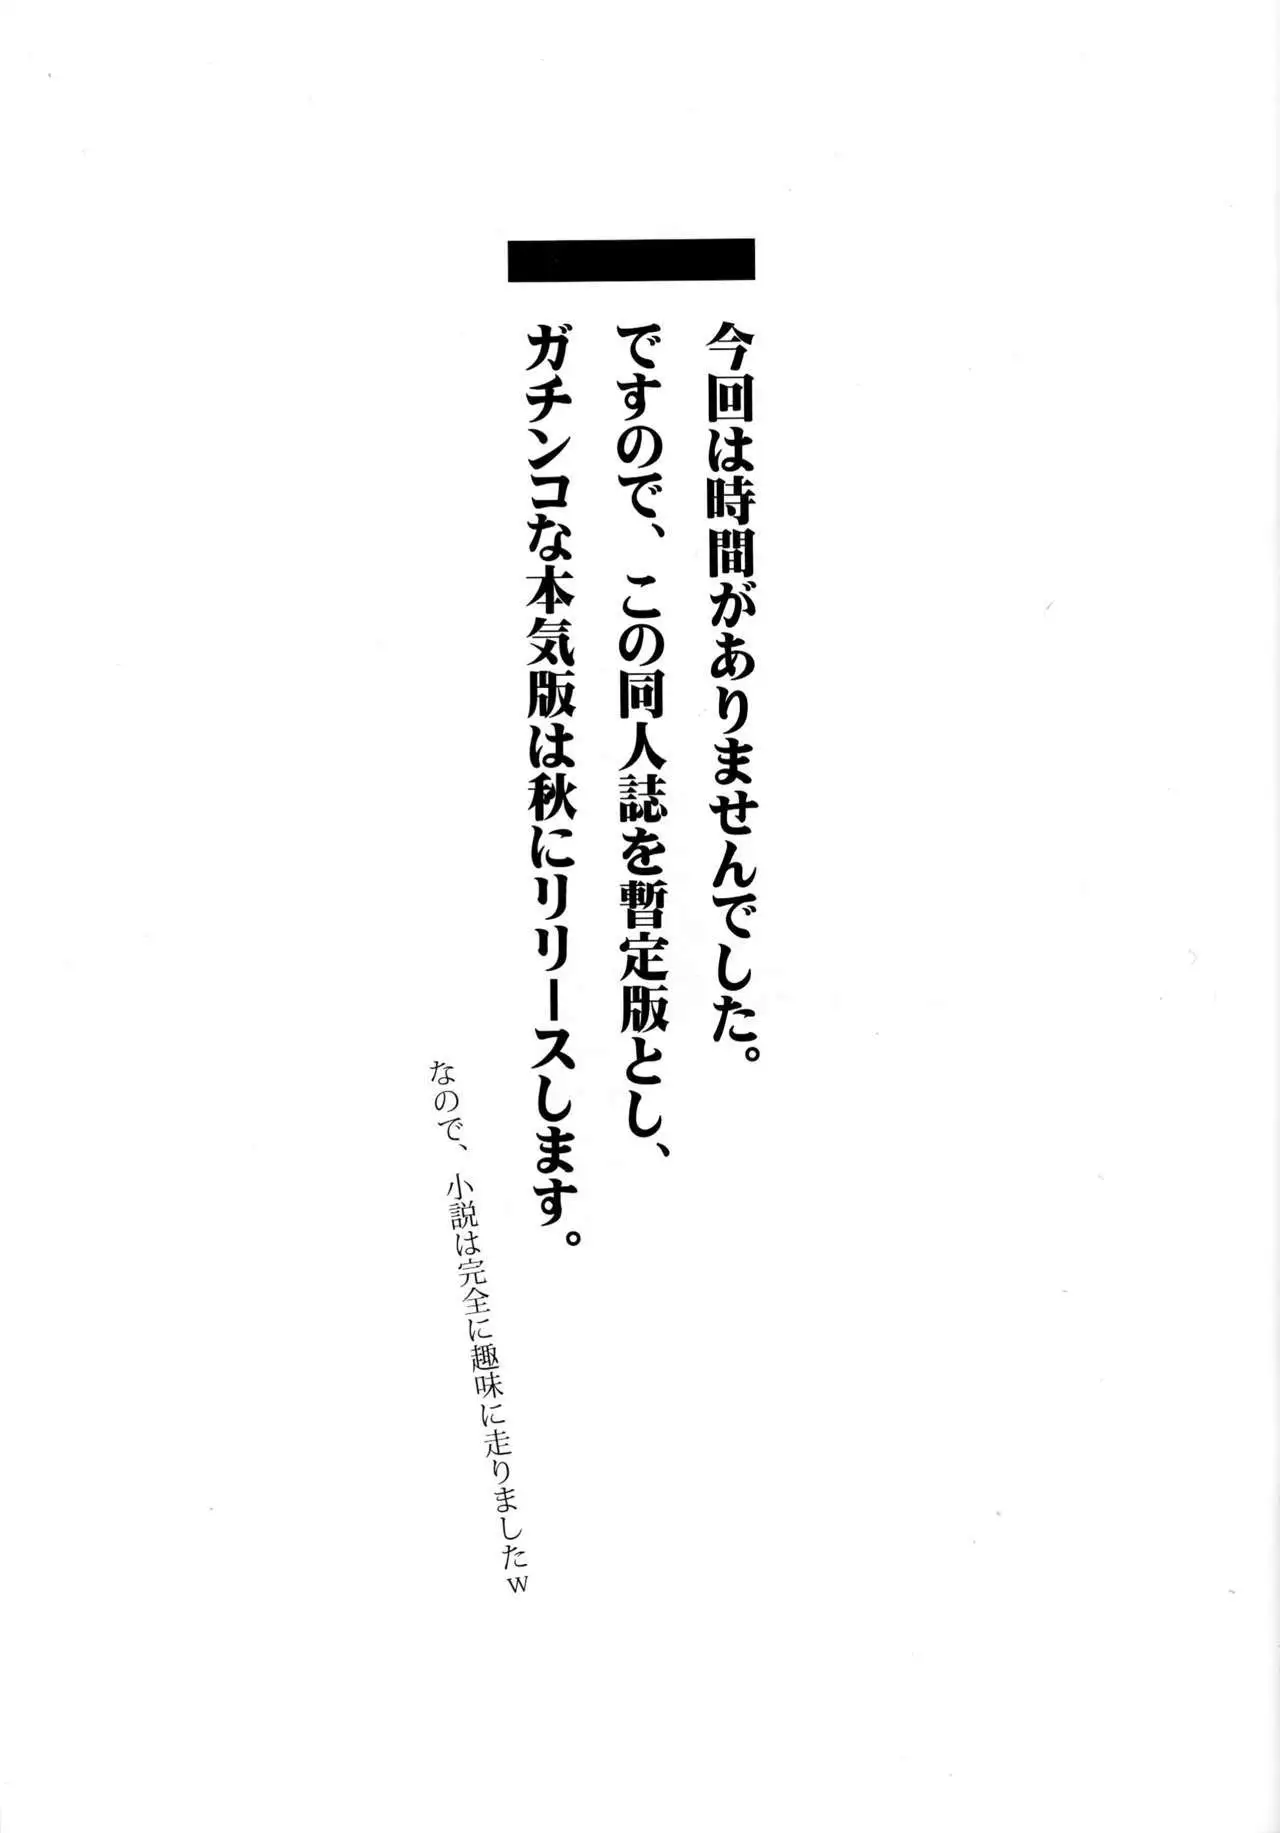 今回は時間がありませんでした。
ですので、この同人誌を暫定版とし、
ガチンコな本気版は秋にリリースします。
なので、小説は完全に趣味に走りましたw